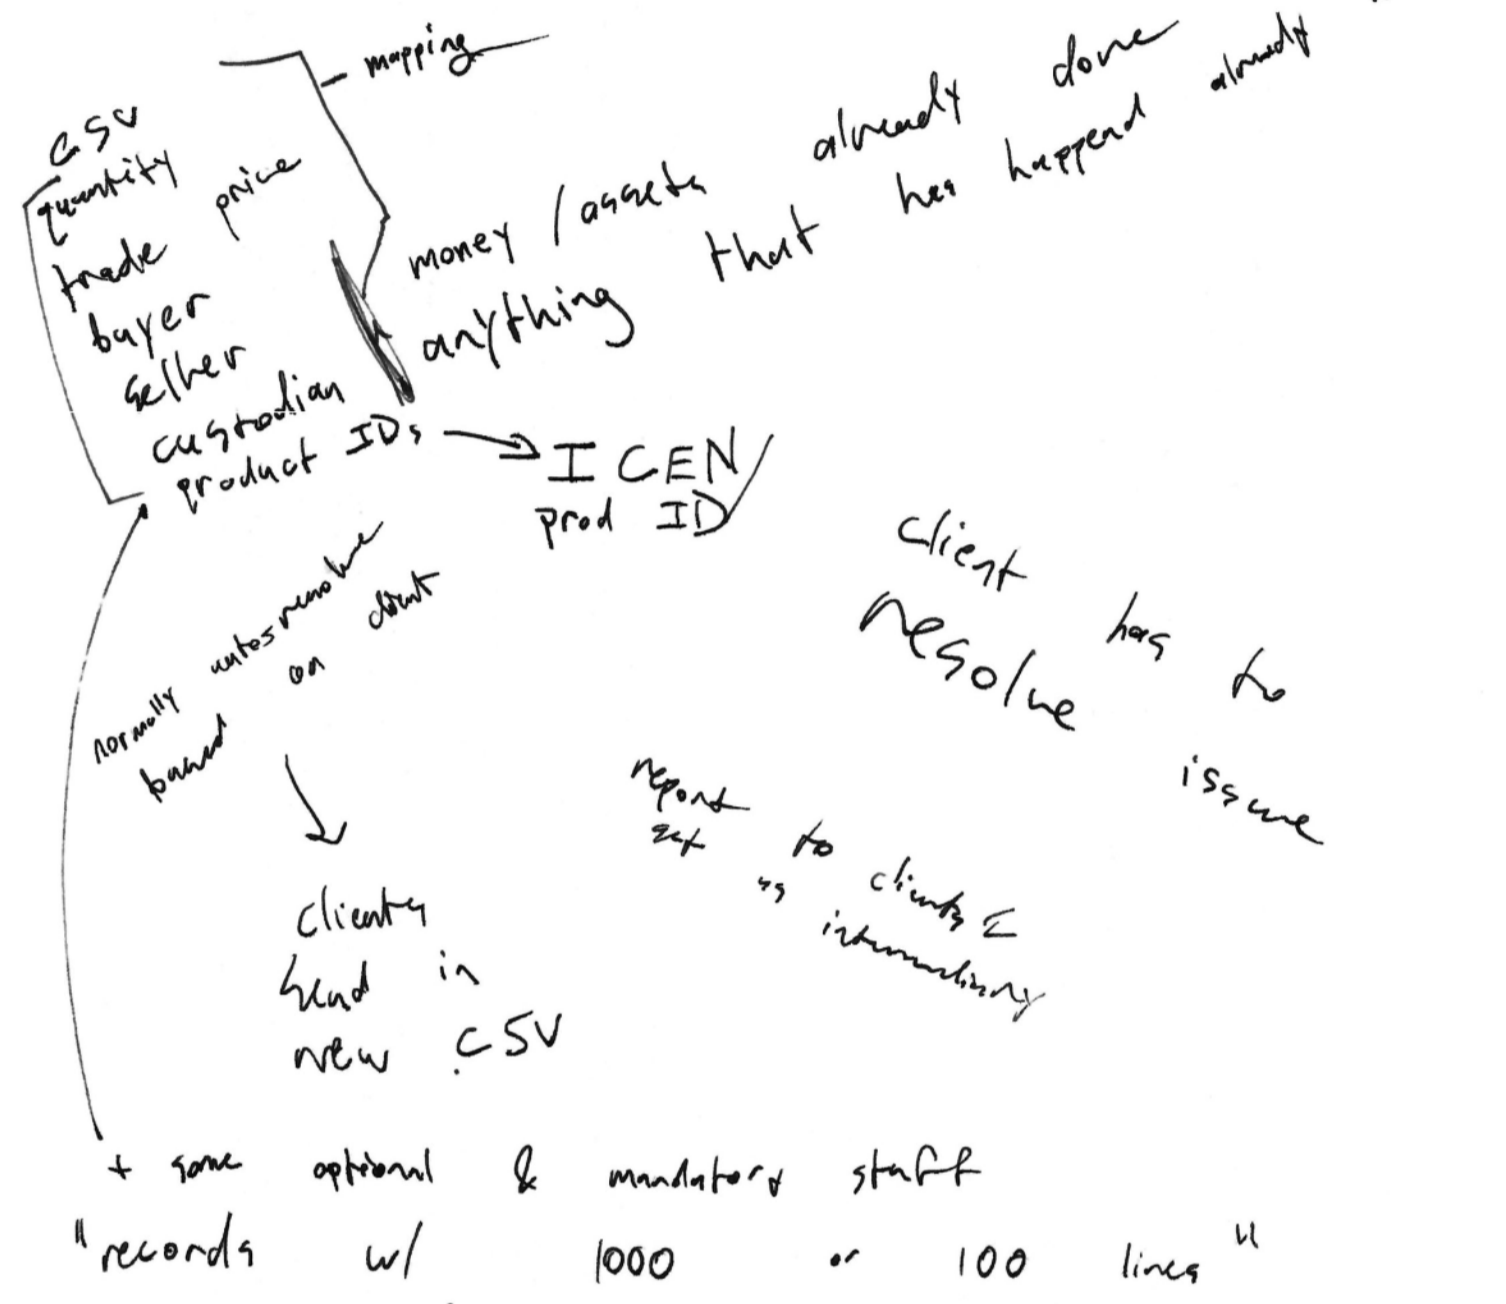 mapping
CSV
quantity
trade price
buyer
seller
custodian
product IDs
money / assets already done
anything that has happend already
I CEN /
prod ID
normally autoresolve
based on client
client has to
resolve issue
report to clients &
act as intermediary
Clients
send in
new CSV
+ some optional & mandatory stuff
"records w/ 1000 or 100 lines"